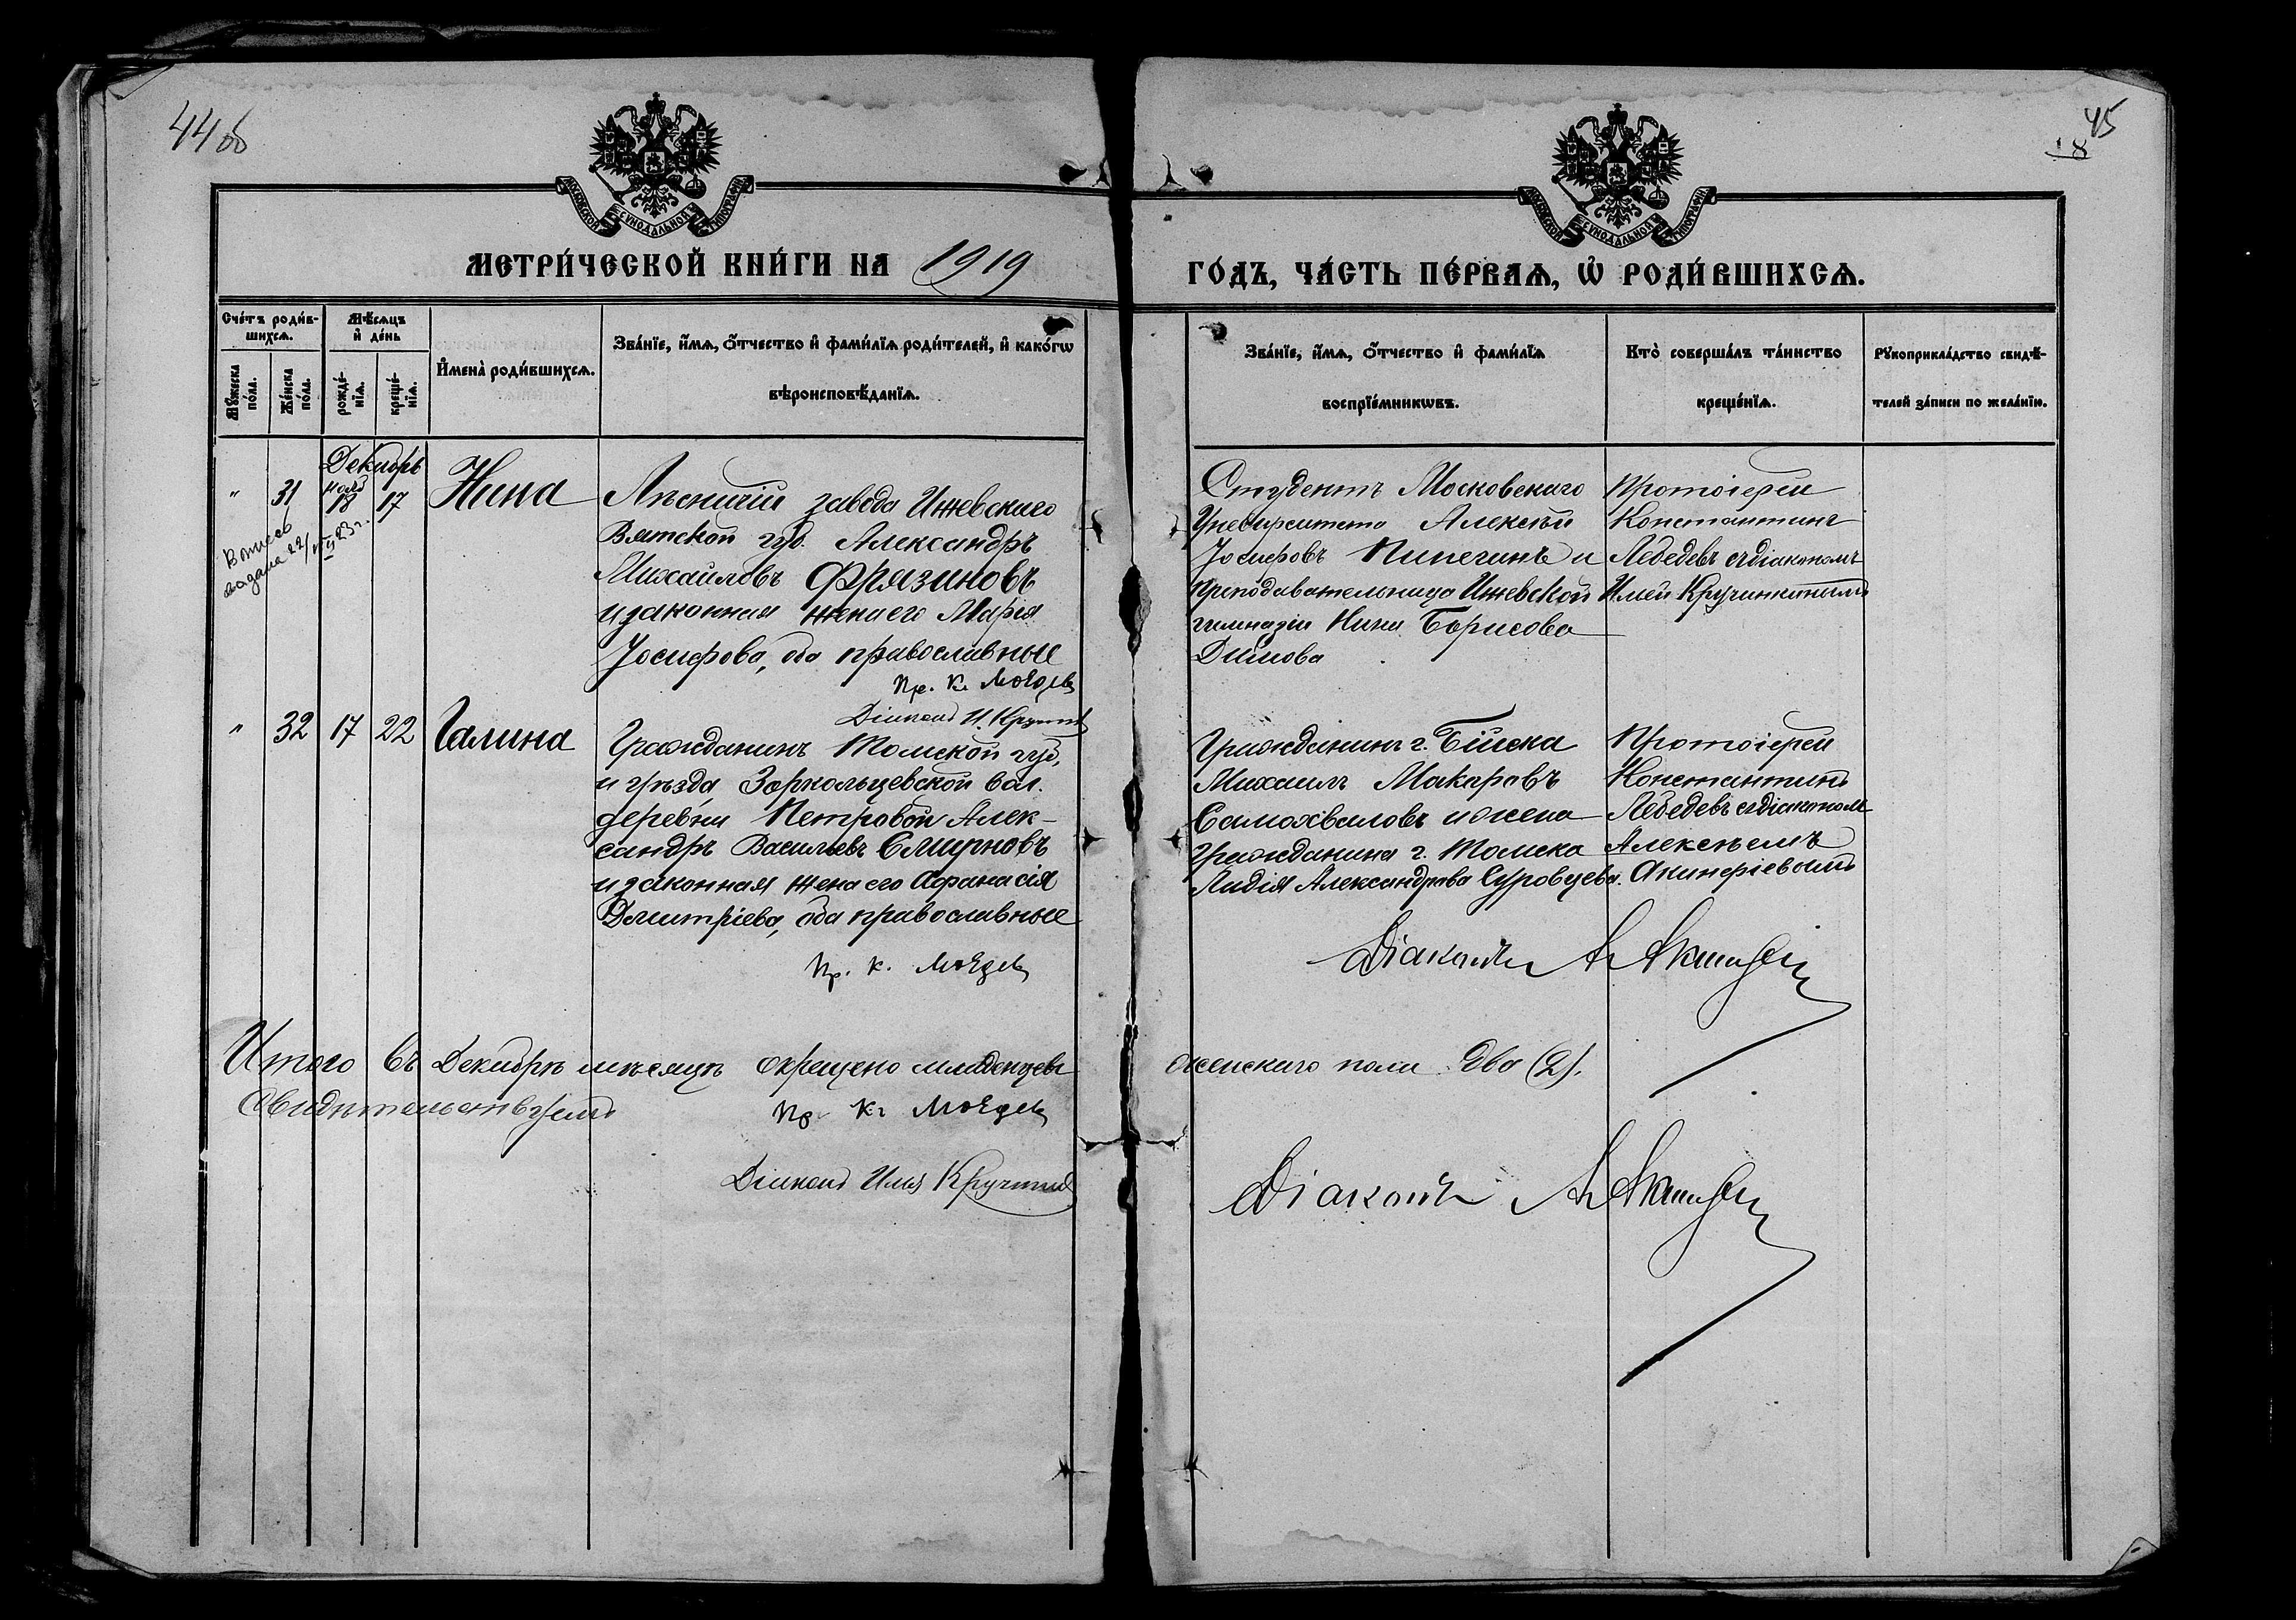 44 об
45
18
МОСКОВСКОЙ СѴНОДАЛЬНОЙ ТИПОГРАФІИ
МОСКОВСКОЙ СѴНОДАЛЬНОЙ ТИПОГРАФІИ
МЕТРИ́ЧЕСКОЙ КНИ́ГИ НА 1919
ГО́ДЪ, ЧА́СТЬ ПЕ́РВАѦ, Ѡ҆ РОДИ́ВШИХСѦ.
Сче́тъ роди́в-
шихсѧ.
Мꙋ́жеска по́ла.
Же́нска по́ла.
Мѣ́сѧцъ и҆ де́нь
рожде́-
нїѧ.
креще́-
нїѧ.
И҆мена̀ роди́вшихсѧ.
Зва́нїе, и҆́мѧ, ѻ҆́тчество и҆ фами́лїѧ роди́телей, и҆ како́гѡ
вѣроисповѣ́данїѧ.
Зва́нїе, и҆́мѧ, ѻ҆́тчество и҆ фами́лїѧ
воспрїе́мникѡвъ.
Кто̀ соверша́лъ та́инство
креще́нїѧ.
Рꙋкоприкла́дство свидѣ́-
телей за́писи по жела́нїю.
Декабрь
" 31 нояб 18 17 Нина
Выпись
выдана 22/VIII 23 г.
Лѣсничій завода Ижевскаго
Вятской губ. Александръ
Михайловъ Фрязиновъ
и законная жена его Марія
Іосифова, оба православные
Пр. К. Лебедев
Діаконъ И. Кручин
Студентъ Московскаго
Университета Алексѣй
Іосифовъ Пипегинъ и
преподавательница Ижевской
гимназіи Нина Борисова
Протоіерей
Константинъ
Лебедевъ съ діакономъ
Ильей Кручинкинымъ
" 32 17 22 Галина
Гражданинъ Томской губ,
и уѣзда Зоркольцевской вол.
деревни Петровой Алек-
сандръ Васильевъ Смирновъ
и законная жена его Афанасія
Димитріева, оба православные
Пр. К. Лебедев
Гражданинъ г. Бійска
Михаилъ Макаровъ
Самохваловъ и жена
гражданина г. Томска
Лидія Александрова Суровцева.
Протоіерей
Константинъ
Лебедевъ съ діакономъ
Алексѣемъ
Акинфіевымъ
Діаконъ А Акинфіев
Итого въ Декабрѣ мѣсяцѣ окрещено младенцевъ
женскаго пола два (2).
Свидѣтельствуемъ
Пр. К. Лебедев
Діаконъ Илія Кручинкинъ
Діаконъ А Акинфіев